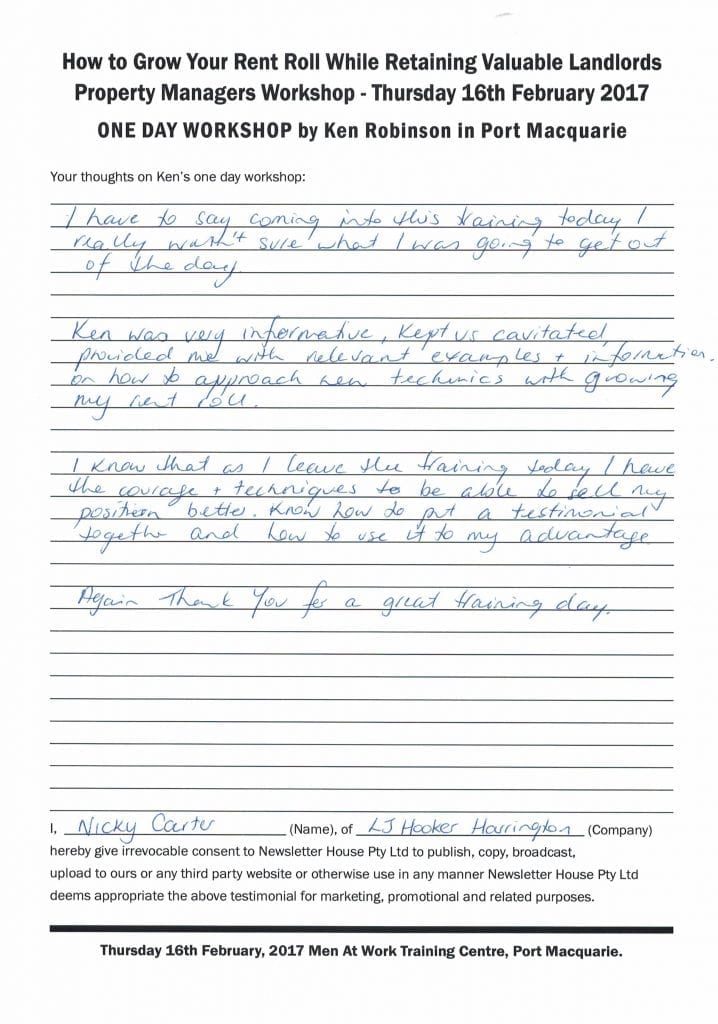 How to Grow Your Rent Roll While Retaining Valuable Landlords
Property Managers Workshop - Thursday 16th February 2017
ONE DAY WORKSHOP by Ken Robinson in Port Macquarie
Your thoughts on Ken's one day workshop:
I have to say coming into this training today I
really wasn't sure what I was going to get out
of the day.
Ken was very informative, Kept us cavitated,
provided me with relevant examples + information.
on how to approach new technics with growing
my rent roll.
I know that as I leave the training today I have
the courage + techniques to be able to sell my
position better. Know how to put a testimonial
together and how to use it to my advantage
Again Thank You for a great training day.
I, Nicky Carter (Name), of LJ Hooker Harrington (Company)
hereby give irrevocable consent to Newsletter House Pty Ltd to publish, copy, broadcast,
upload to ours or any third party website or otherwise use in any manner Newsletter House Pty Ltd
deems appropriate the above testimonial for marketing, promotional and related purposes.
Thursday 16th February, 2017 Men At Work Training Centre, Port Macquarie.